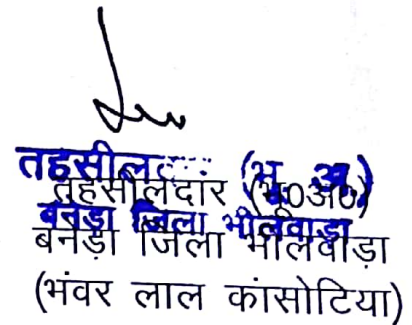 तहसीलदार (भू०अ०)
बनेड़ा जिला भीलवाड़ा
तहसीलदार (भू०अ०)
बनेड़ा जिला भीलवाड़ा
(भंवर लाल कांसोटिया)